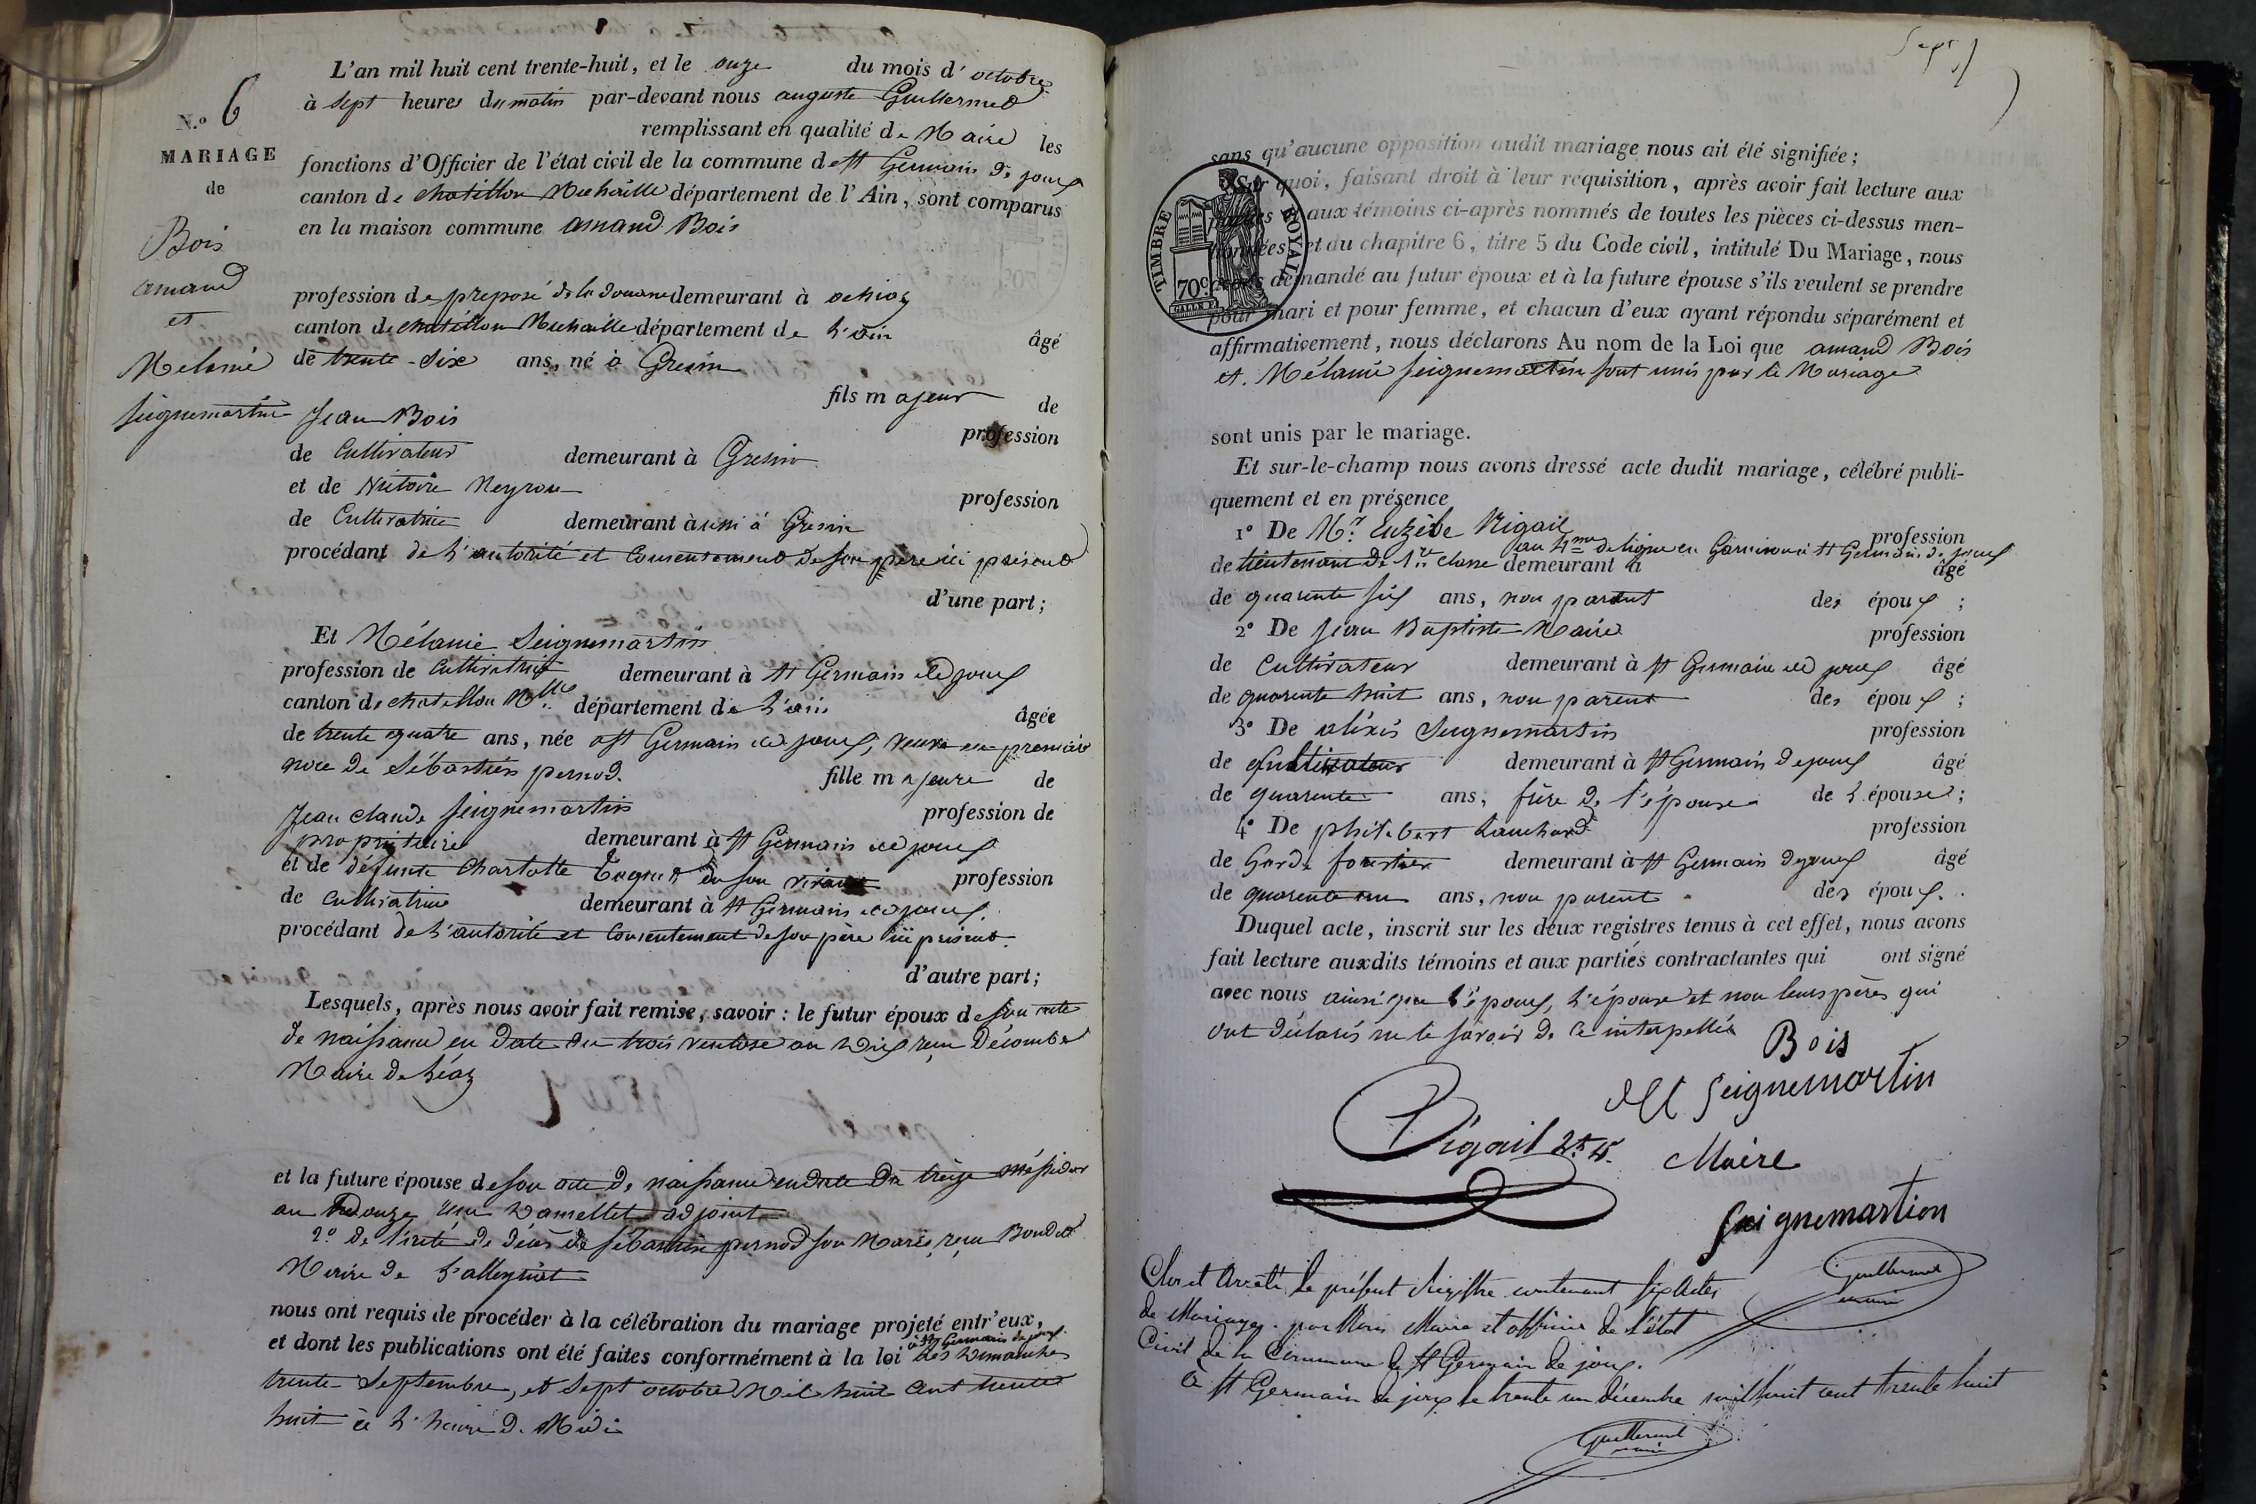 N.o 6
MARIAGE
de
Bois
amand
et
Mélanie
Seignemartin
L'an mil huit cent trente-huit, et le onze du mois d'octobre
à sept heures du matin par-devant nous auguste Guillermet
remplissant en qualité de Maire les
fonctions d'Officier de l'état civil de la commune de St Germain de joux
canton de chatillon Michaille département de l'Ain, sont comparus
en la maison commune amand Bois
profession de preposé de la douane demeurant à
canton de chatillon Michaille département de l'ain âgé
de trente-six ans, né à Gresin
fils majeur de
Jean Bois profession
de Cultivateur demeurant à Gresin
et de Victoire Neyrou profession
de Cultivatrice demeurant aussi à Gresin
procédant de l'autorité et Consentement de son père ici présent
d'une part;
Et Mélanie Seignemartin
profession de Cultivatrice demeurant à St Germain de joux
canton de chatillon Mlle département de l'ain âgée
de trente quatre ans, née à St Germain de joux, veuve en premier
noce de Sébastien pernod. fille majeure de
Jean Claude Seignemartin profession de
propriétaire demeurant à St Germain de joux
et de défunte Charlotte en son vivant profession
de Cultivatrice demeurant à St Germain de joux.
procédant de l'autorité et Consentement de son père ici présent.
d'autre part;
Lesquels, après nous avoir fait remise, savoir : le futur époux de son acte
de naissance en date du trois ventose an dix reçu Décombe
Maire de Léaz
et la future épouse de son acte de naissance en date du treize méssidor
an douze reçu adjoint
2.o de l'acte de décès de Sébastien pernod son Mari, reçu Boudet
Maire de
nous ont requis de procéder à la célébration du mariage projeté entr'eux,
et dont les publications ont été faites conformément à la loi à St Germain de joux les Dimanches
trente Septembre, et Sept octobre Mil huit Cent trente
huit à l'heure de Midi
Sept
TIMBRE ROYAL
70c
sans qu'aucune opposition audit mariage nous ait été signifiée;
Sur quoi, faisant droit à leur requisition, après avoir fait lecture aux
parties aux témoins ci-après nommés de toutes les pièces ci-dessus men-
tionnées, et du chapitre 6, titre 5 du Code civil, intitulé Du Mariage, nous
avons demandé au futur époux et à la future épouse s'ils veulent se prendre
pour mari et pour femme, et chacun d'eux ayant répondu séparément et
affirmativement, nous déclarons Au nom de la Loi que amand Bois
et Mélanie Seignemartin sont unis par le Mariage
sont unis par le mariage.
Et sur-le-champ nous avons dressé acte dudit mariage, célébré publi-
quement et en présence
1o De Mr. Euzèbe Rigail profession
au 4me de ligne en Garnison à St Germain de joux
de lieutenant de 1re classe demeurant à âgé
de quarente six ans, non parent des époux ;
2o De Jean Baptiste Maire profession
de Cultivateur demeurant à St Germain de joux âgé
de quarente huit ans, non parent des époux ;
3o De aléxis Seignemartin profession
de Cultivateur demeurant à St Germain de joux âgé
de quarente ans, frère de l'épouse de l'épouse;
4o De philibert profession
de Garde forestier demeurant à St Germain de joux âgé
de quarente un ans, non parent des époux.
Duquel acte, inscrit sur les deux registres tenus à cet effet, nous avons
fait lecture auxdits témoins et aux parties contractantes qui ont signé
avec nous ainsi que l'époux, l'épouse et non leurs pères qui
ont déclarés ne le savoir de ce interpellés
Bois
Seignemartin
Rigail
Maire
Seignemartion
Guillermet
maire
Clos et Arrêté le présent Régistre contenant six actes
de Mariages. par Nous Maire et officier de l'état
Civil de la Commune de St Germain de joux.
à St Germain de joux le trente un décembre mil huit cent trente huit
Guillermet
maire